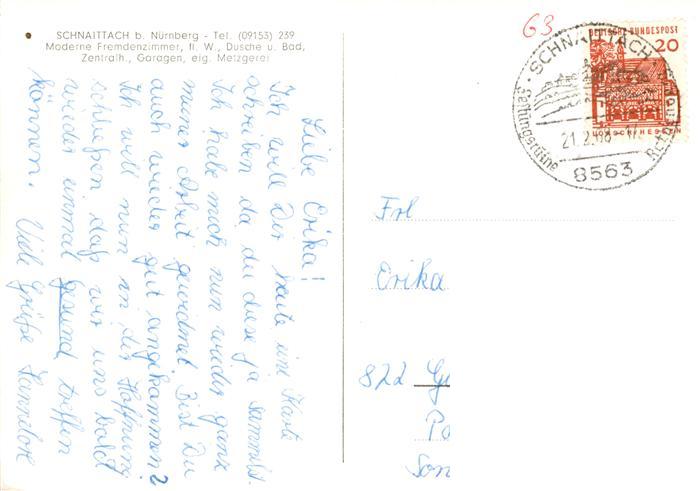 SCHNAITTACH b. Nürnberg - Tel. (09153) 239
Moderne Fremdenzimmer, fl. W., Dusche u. Bad,
Zentralh., Garagen, eig. Metzgerei
Liebe Erika!
Ich will Dir heute eine Karte
schreiben da du diese ja sammelst.
Ich habe mich nun wieder ganz
meiner Arbeit gewidmet. Bist Du
auch wieder gut angekommen?
Ich will nun in der Hoffnung
schließen, daß wir uns bald
wieder einmal gesund treffen
können. Viele Grüße Hannelore
63
DEUTSCHE BUNDESPOST
20
LORSCH/HESSEN
SCHNAITTACH
Festungsruine
21.2.68
8563
Frl
Erika
822
Son